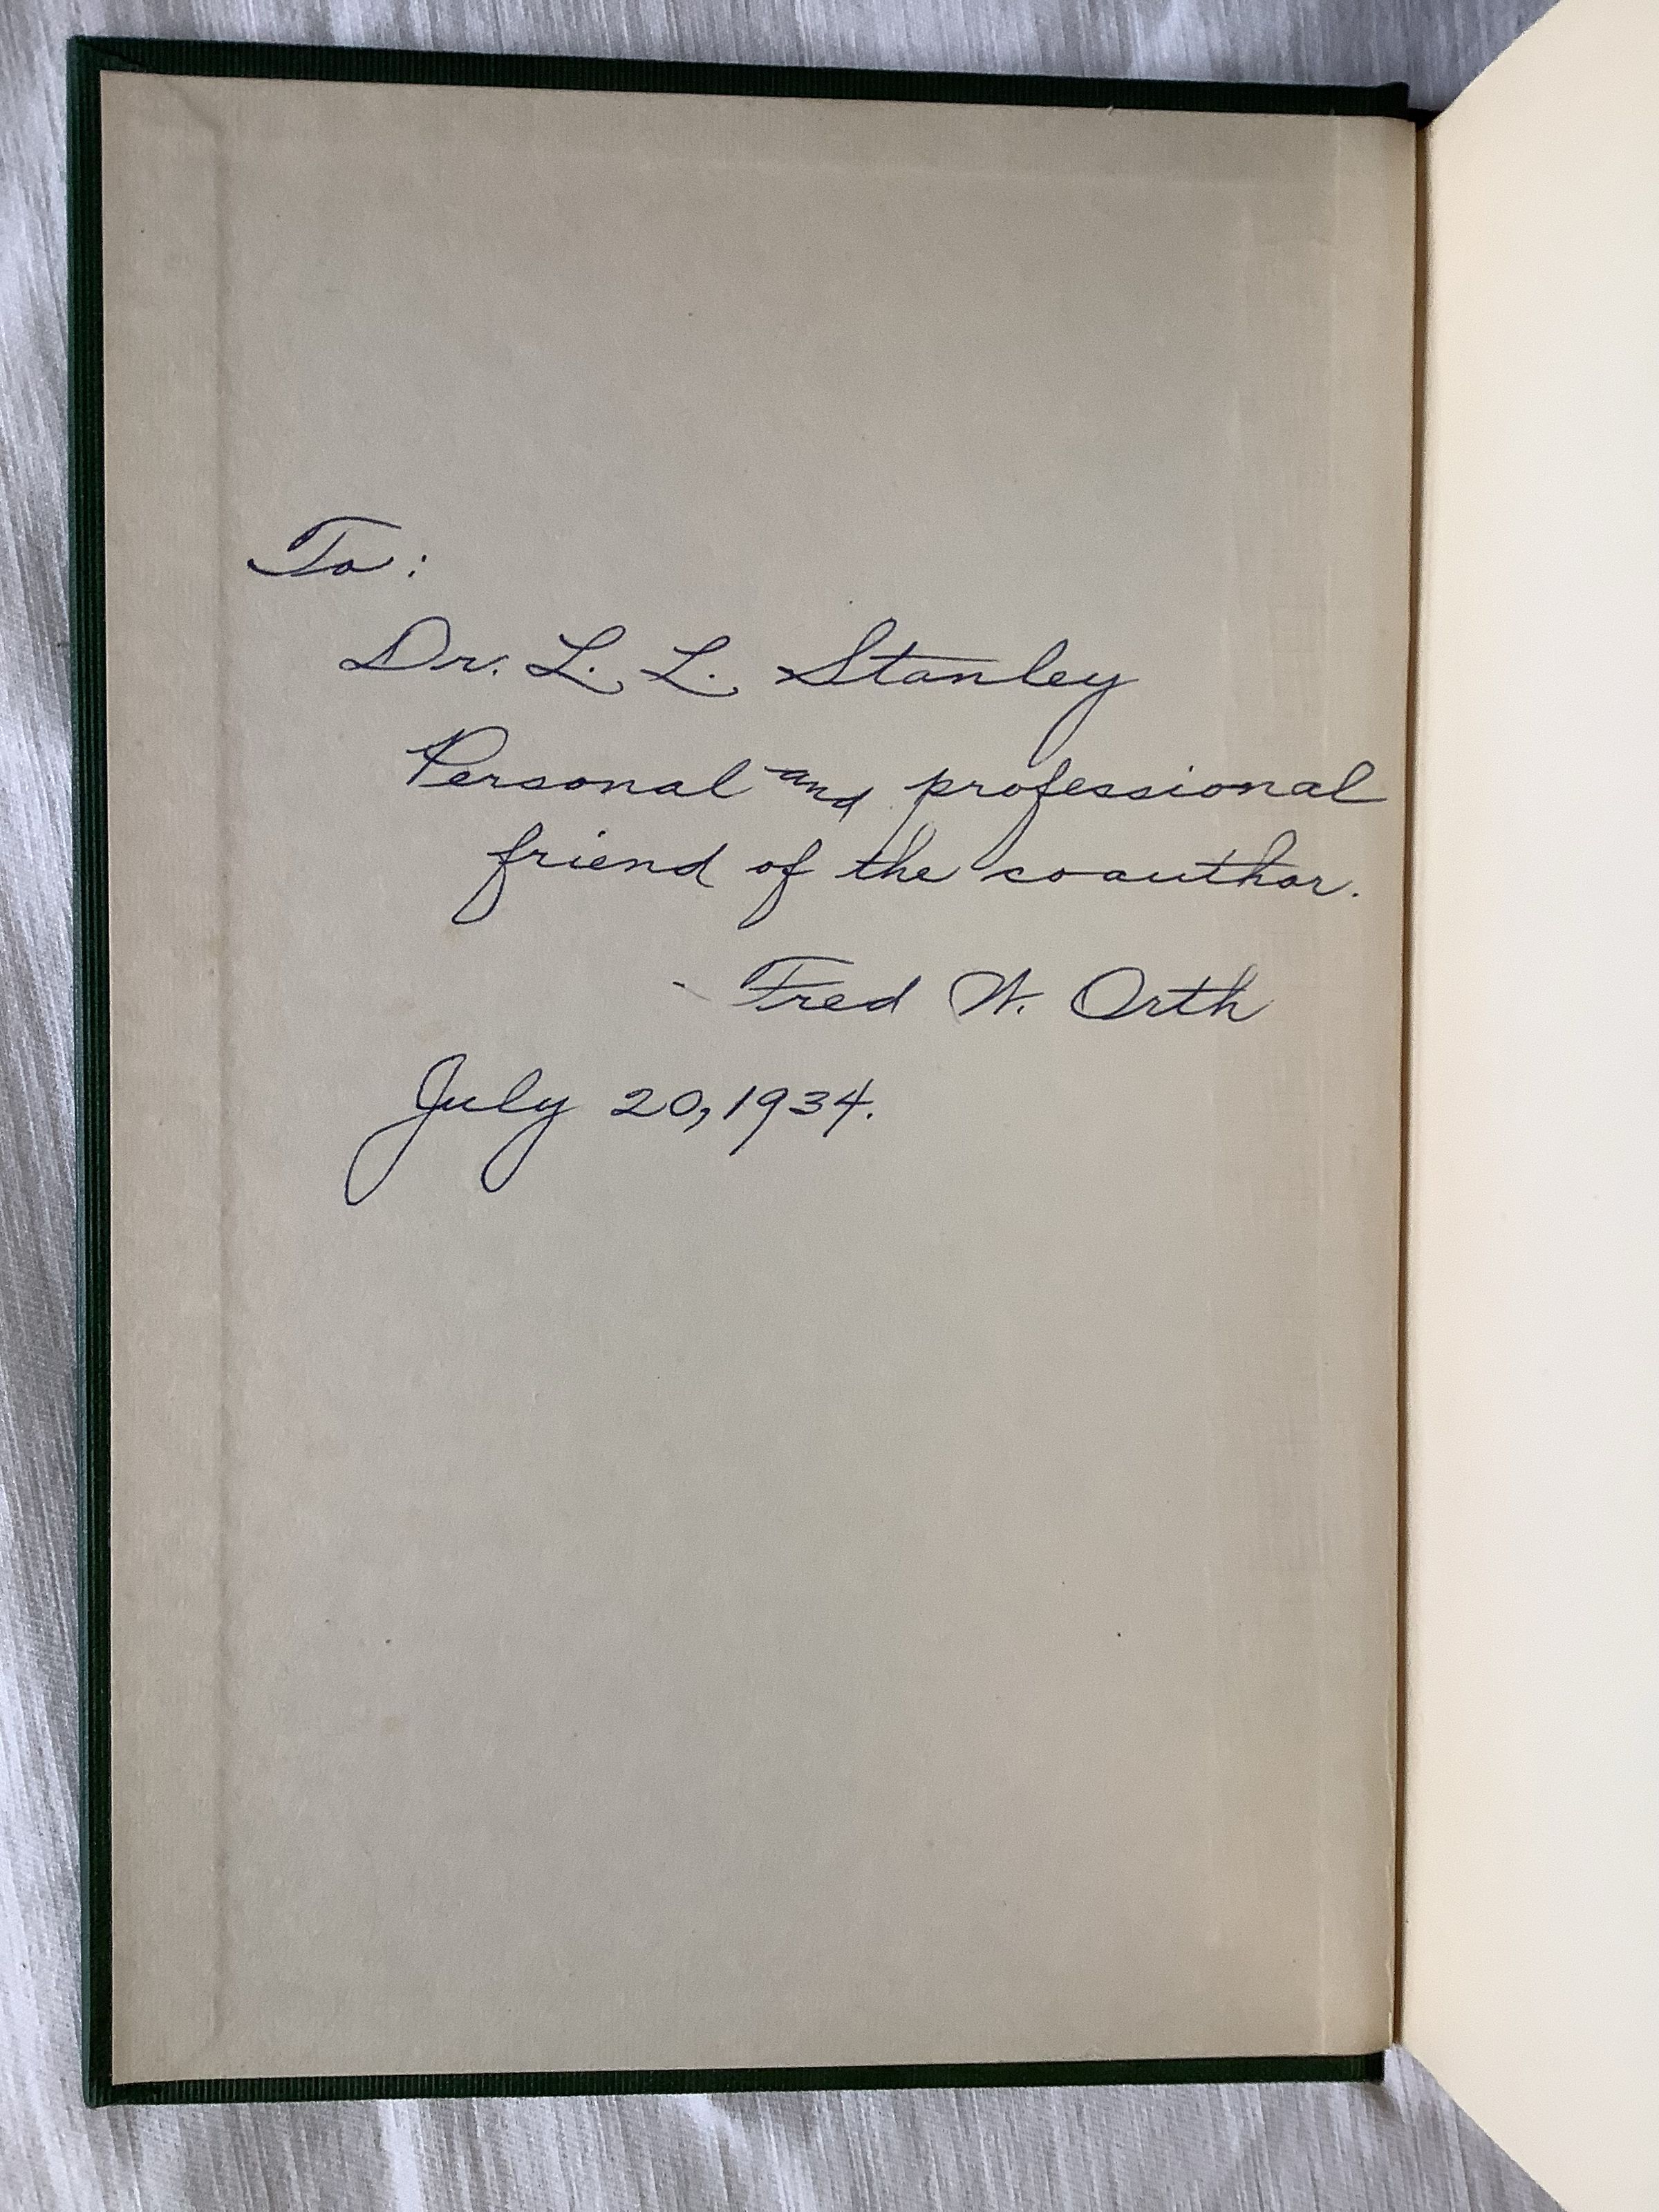 To:
Dr. L. L. Stanley
Personal and professional
friend of the coauthor.
- Fred W. Orth
July 20, 1934.